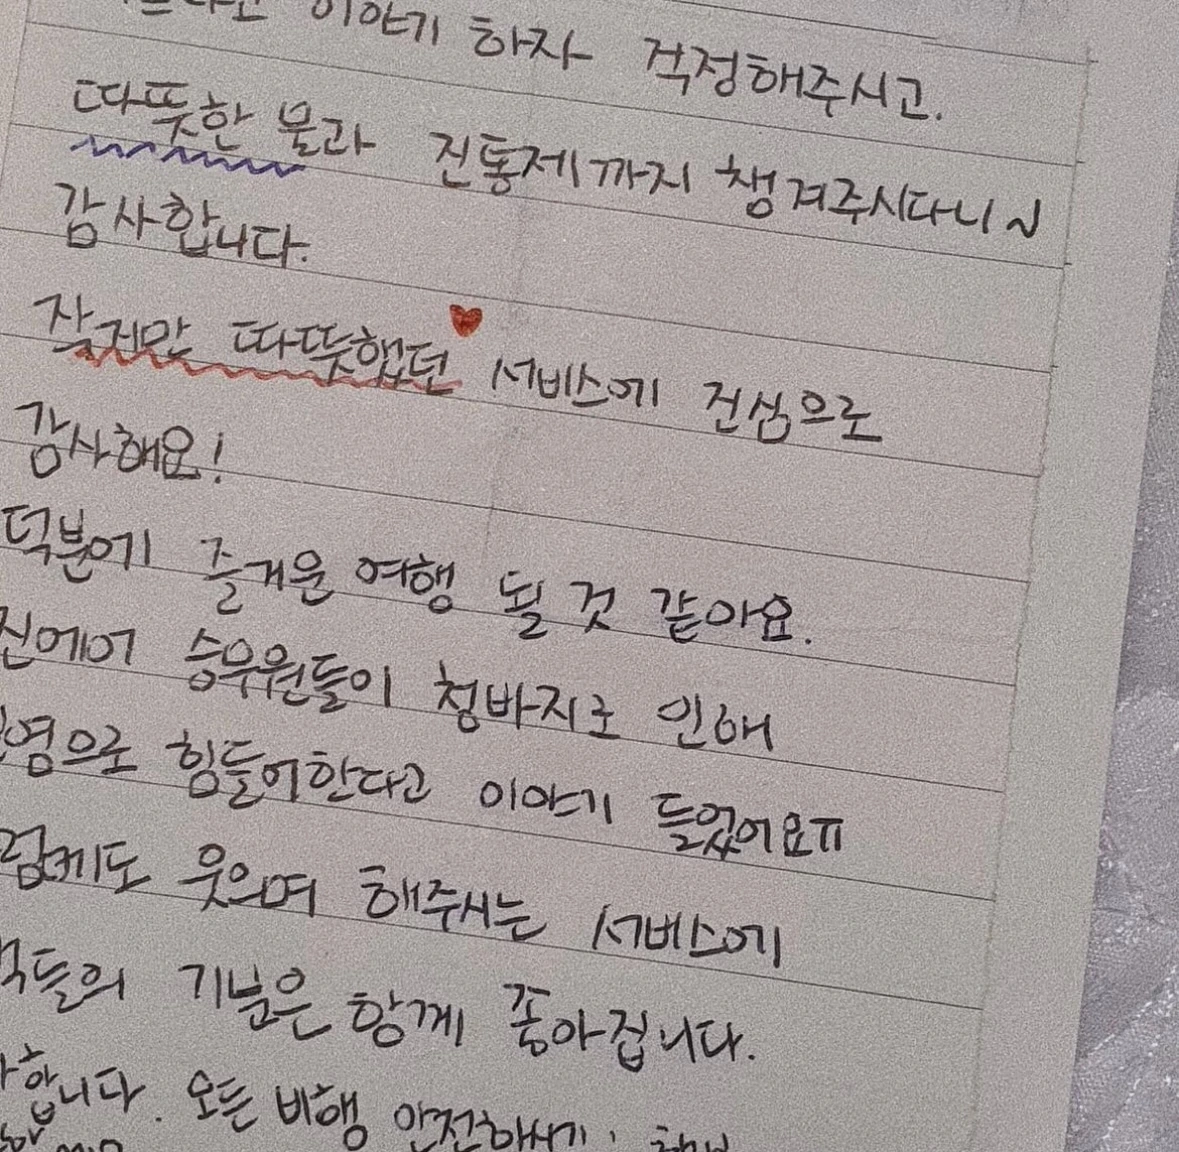 이야기 하자 걱정해주시고.
따뜻한 물과 진통제까지 챙겨주시다니~
감사합니다.
작지만 따뜻했던♥ 서비스에 진심으로
감사해요!
덕분에 즐거운 여행 될 것 같아요.
진에어 승무원들이 청바지로 인해
으로 힘들어한다고 이야기 들었어요ㅠ
웃으며 해주시는 서비스에
기분은 함께 좋아집니다.
모든 비행 안전하시기,